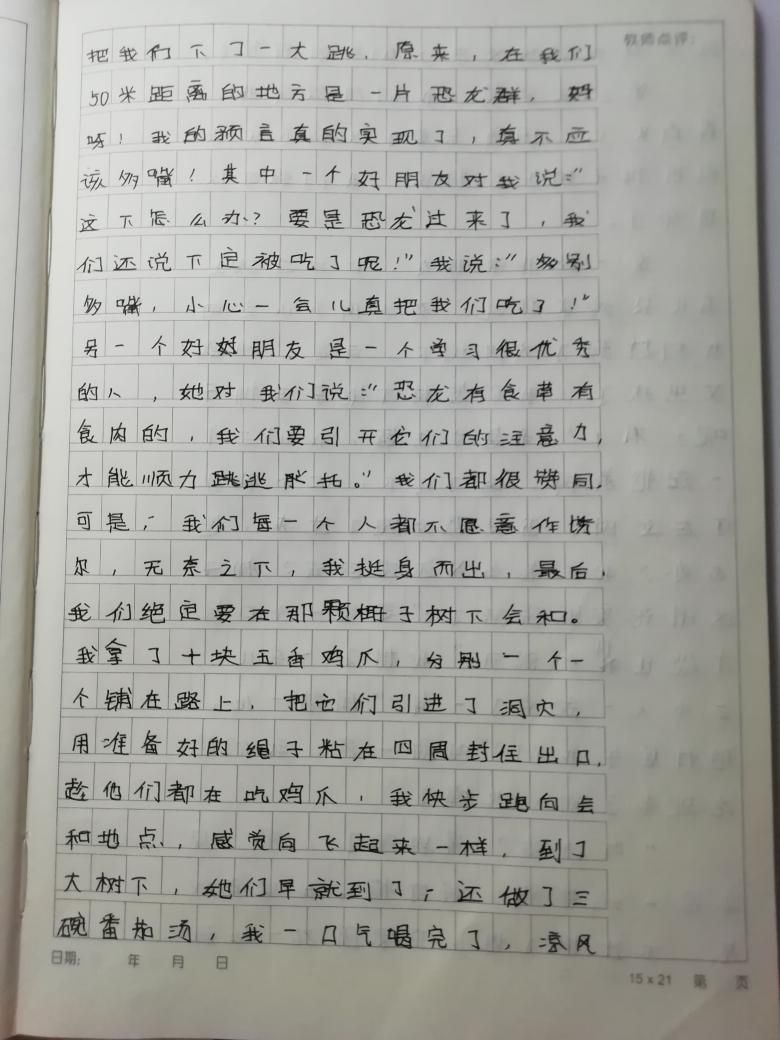 教师点评:
把我们下了一大跳，原来，在我们
50米距离的地方是一片恐龙群，好
呀！我的预言真的实现了，真不应
该多嘴！其中一个好朋友对我说："
这下怎么办？要是恐龙过来了，我
们还说不定被吃了呢！"我说："多别
多嘴，小心一会儿真把我们吃了！"
另一个好好朋友是一个学习很优秀
的人，她对我们说："恐龙有食草有
食肉的，我们要引开它们的注意力，
才能顺力跳逃脱托。"我们都很赞同，
可是，我们每一个人都不愿意作
尔，无奈之下，我挺身而出，最后，
我们绝定要在那颗椰子树下会和。
我拿了十块五香鸡爪，分别一个一
个铺在路上，把它们引进了洞穴，
用准备好的绳子粘在四周封住出口，
趁他们都在吃鸡爪，我快步跑向会
和地点，感觉向飞起来一样，到了
大树下，她们早就到了，还做了三
碗番茄汤，我一口气喝完了，凉风
日期: 年 月 日
15 x 21 第 页